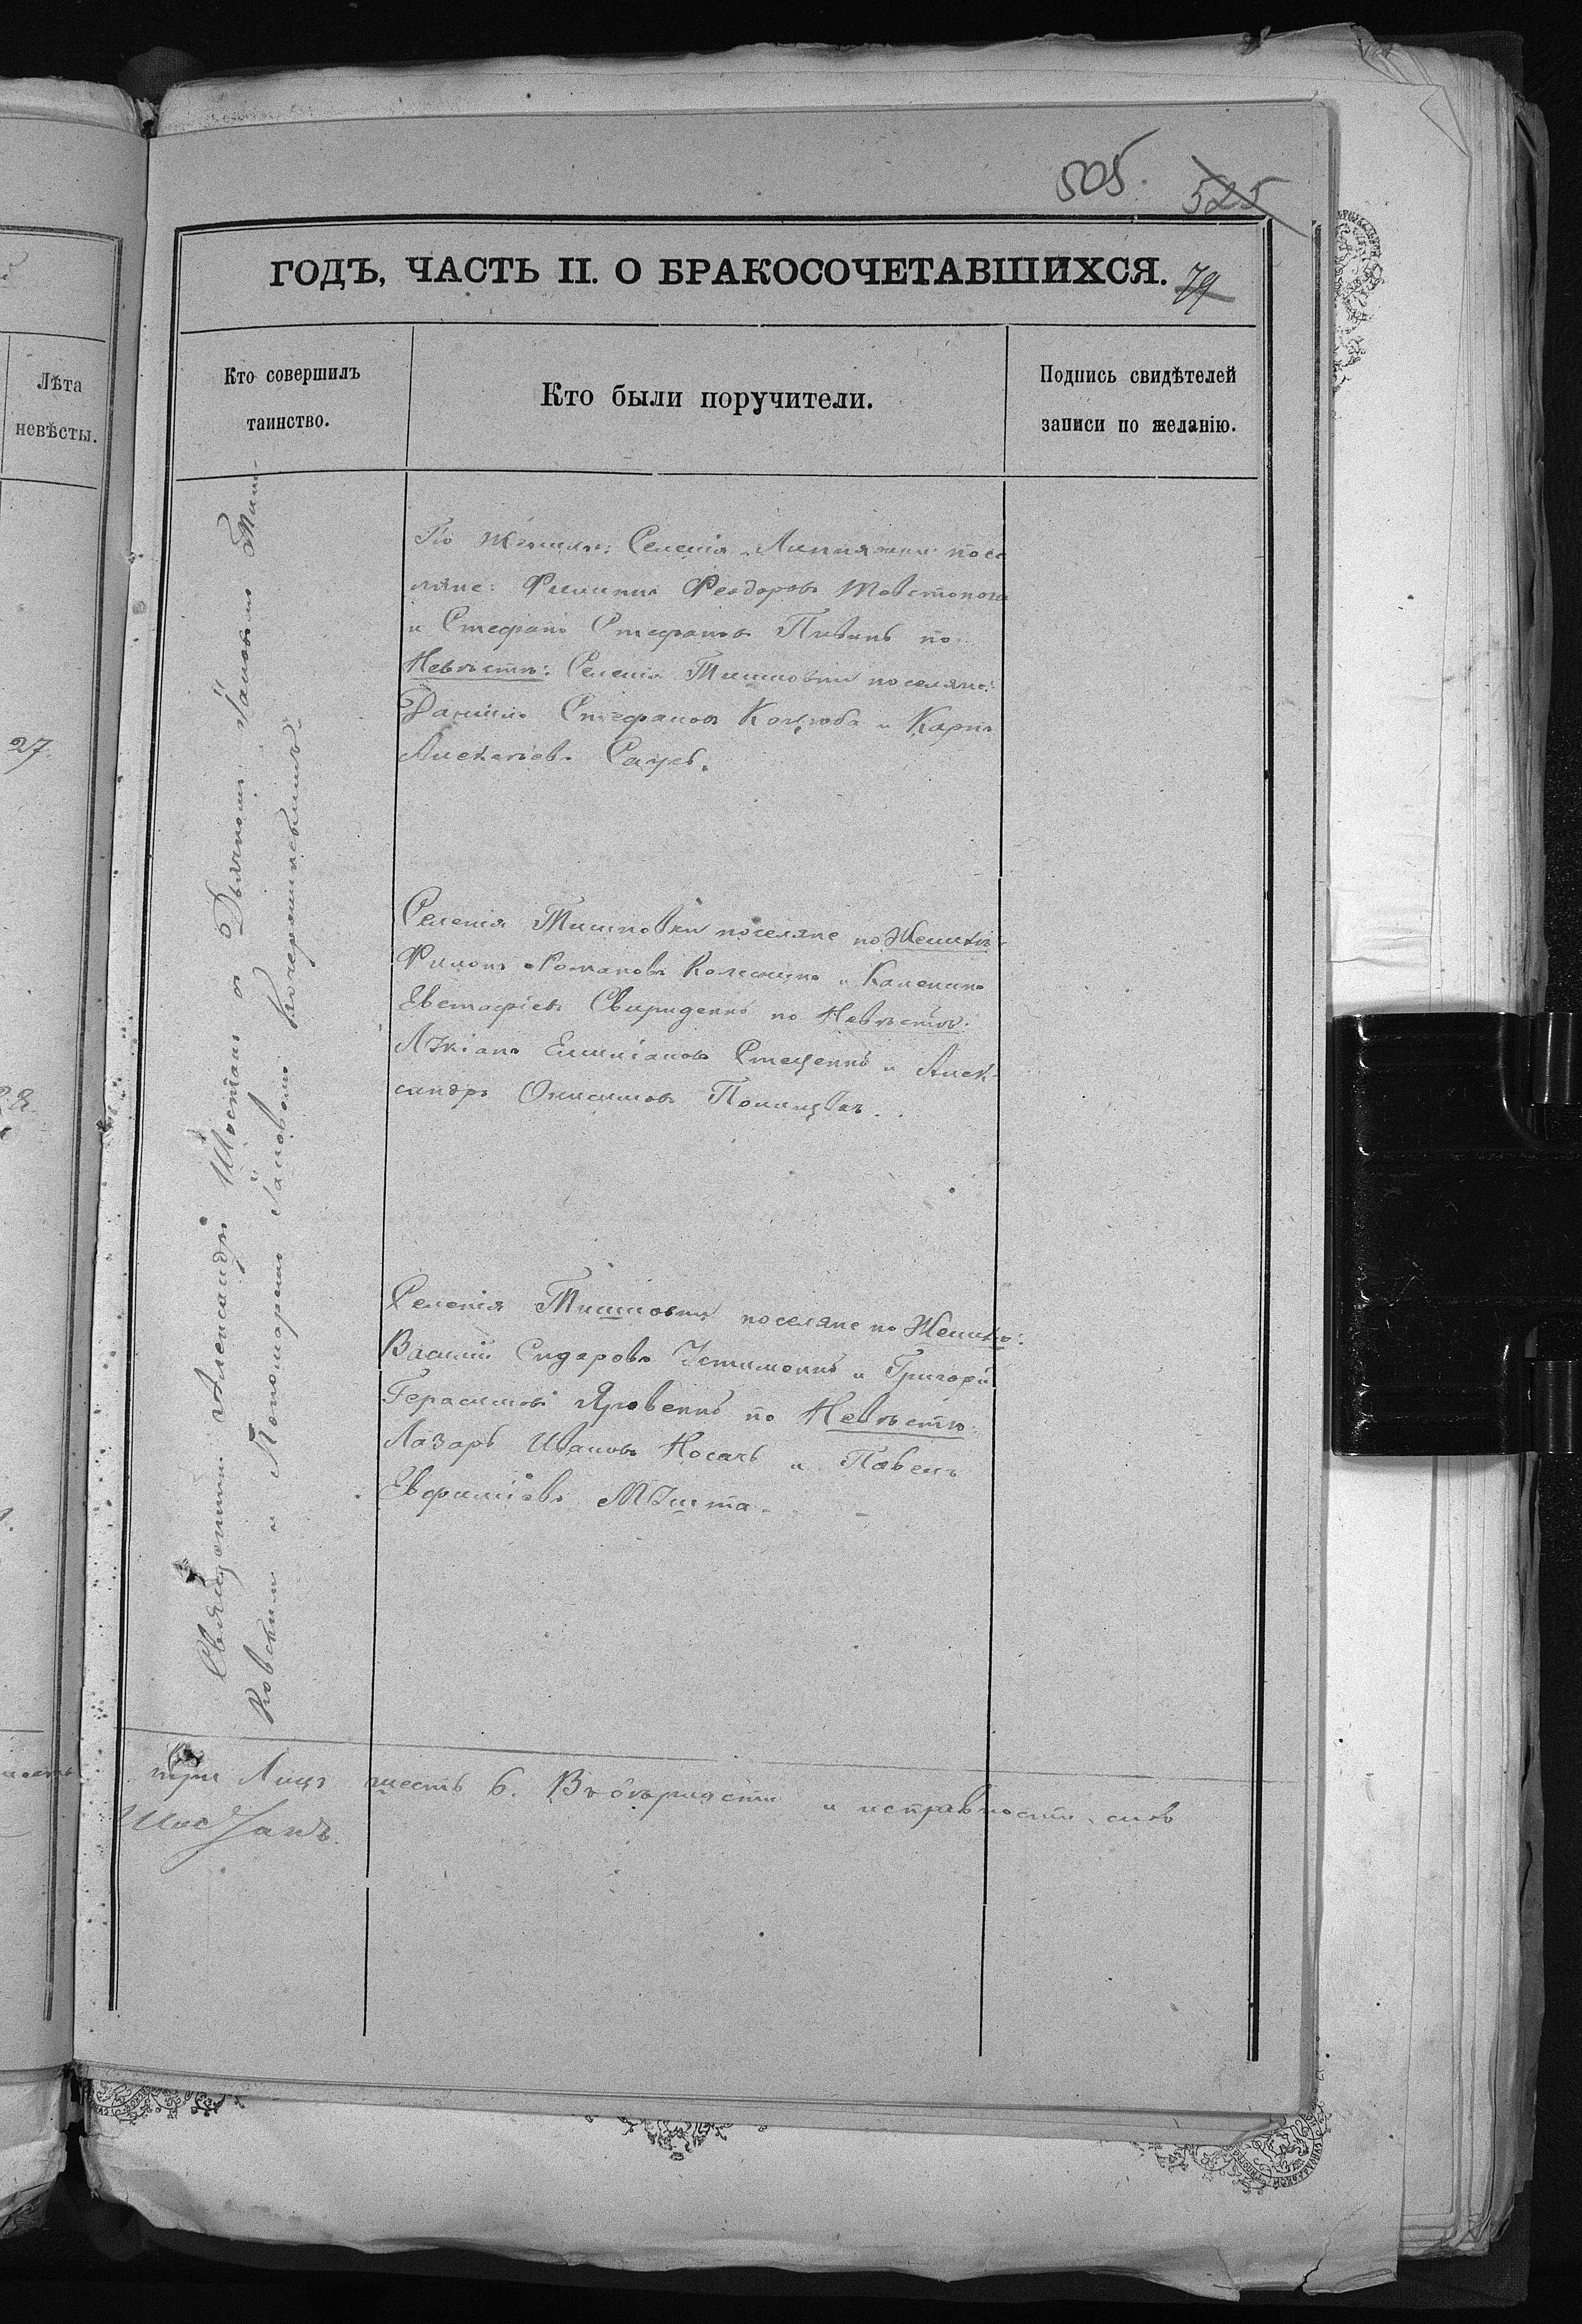 505. 525
ГОДЪ, ЧАСТЬ II. О БРАКОСОЧЕТАВШИХСЯ. 79
Лѣта
невѣсты.
Кто совершилъ
таинство.
Кто были поручители.
Подпись свидѣтелей
записи по желанію.
27.
Священникъ Александръ Шостакъ съ Дьячкомъ Іаковомъ
ковскимъ и Пономаремъ Іаковомъ
По Селенія посе
ляне: Филиппъ Феодоровъ Товстоногъ
и Стефанъ Стефановъ Пивень по
Невѣстѣ: Селенія Тишковки поселяне:
Даніилъ Стефановъ Коцюба и Карпъ
Алексѣевъ Саусь.
Селенія Тишковки поселяне по Женихѣ
Филонъ Романовъ и
Евстафіевъ Свириденко по Невѣстѣ:
Лукіанъ Емиліановъ Стеценко и Алек-
сандръ Онисимовъ
Селенія Тишковки поселяне по Женихѣ:
Василій Сидоровъ Устименко и Григорій
Герасимовъ Яровенко по Невѣстѣ:
Лазарь Ивановъ Носачь и Павелъ
Евфиміевъ
три Лицъ шесть 6. Въ вѣрности и исправности симъ
Шостакъ.